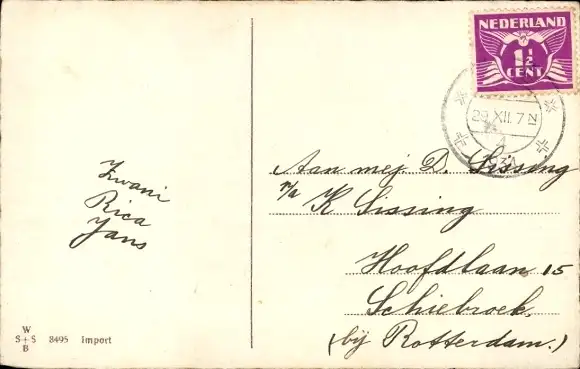 NEDERLAND
1½
CENT
29 XII. 7 N
193
Aan mej. D. Sissing
p/a K Sissing
Hoofdlaan 15
Schiebroek.
(bij Rotterdam.)
Zwani
Rica
Jans
W
S+S 8495 Import
B